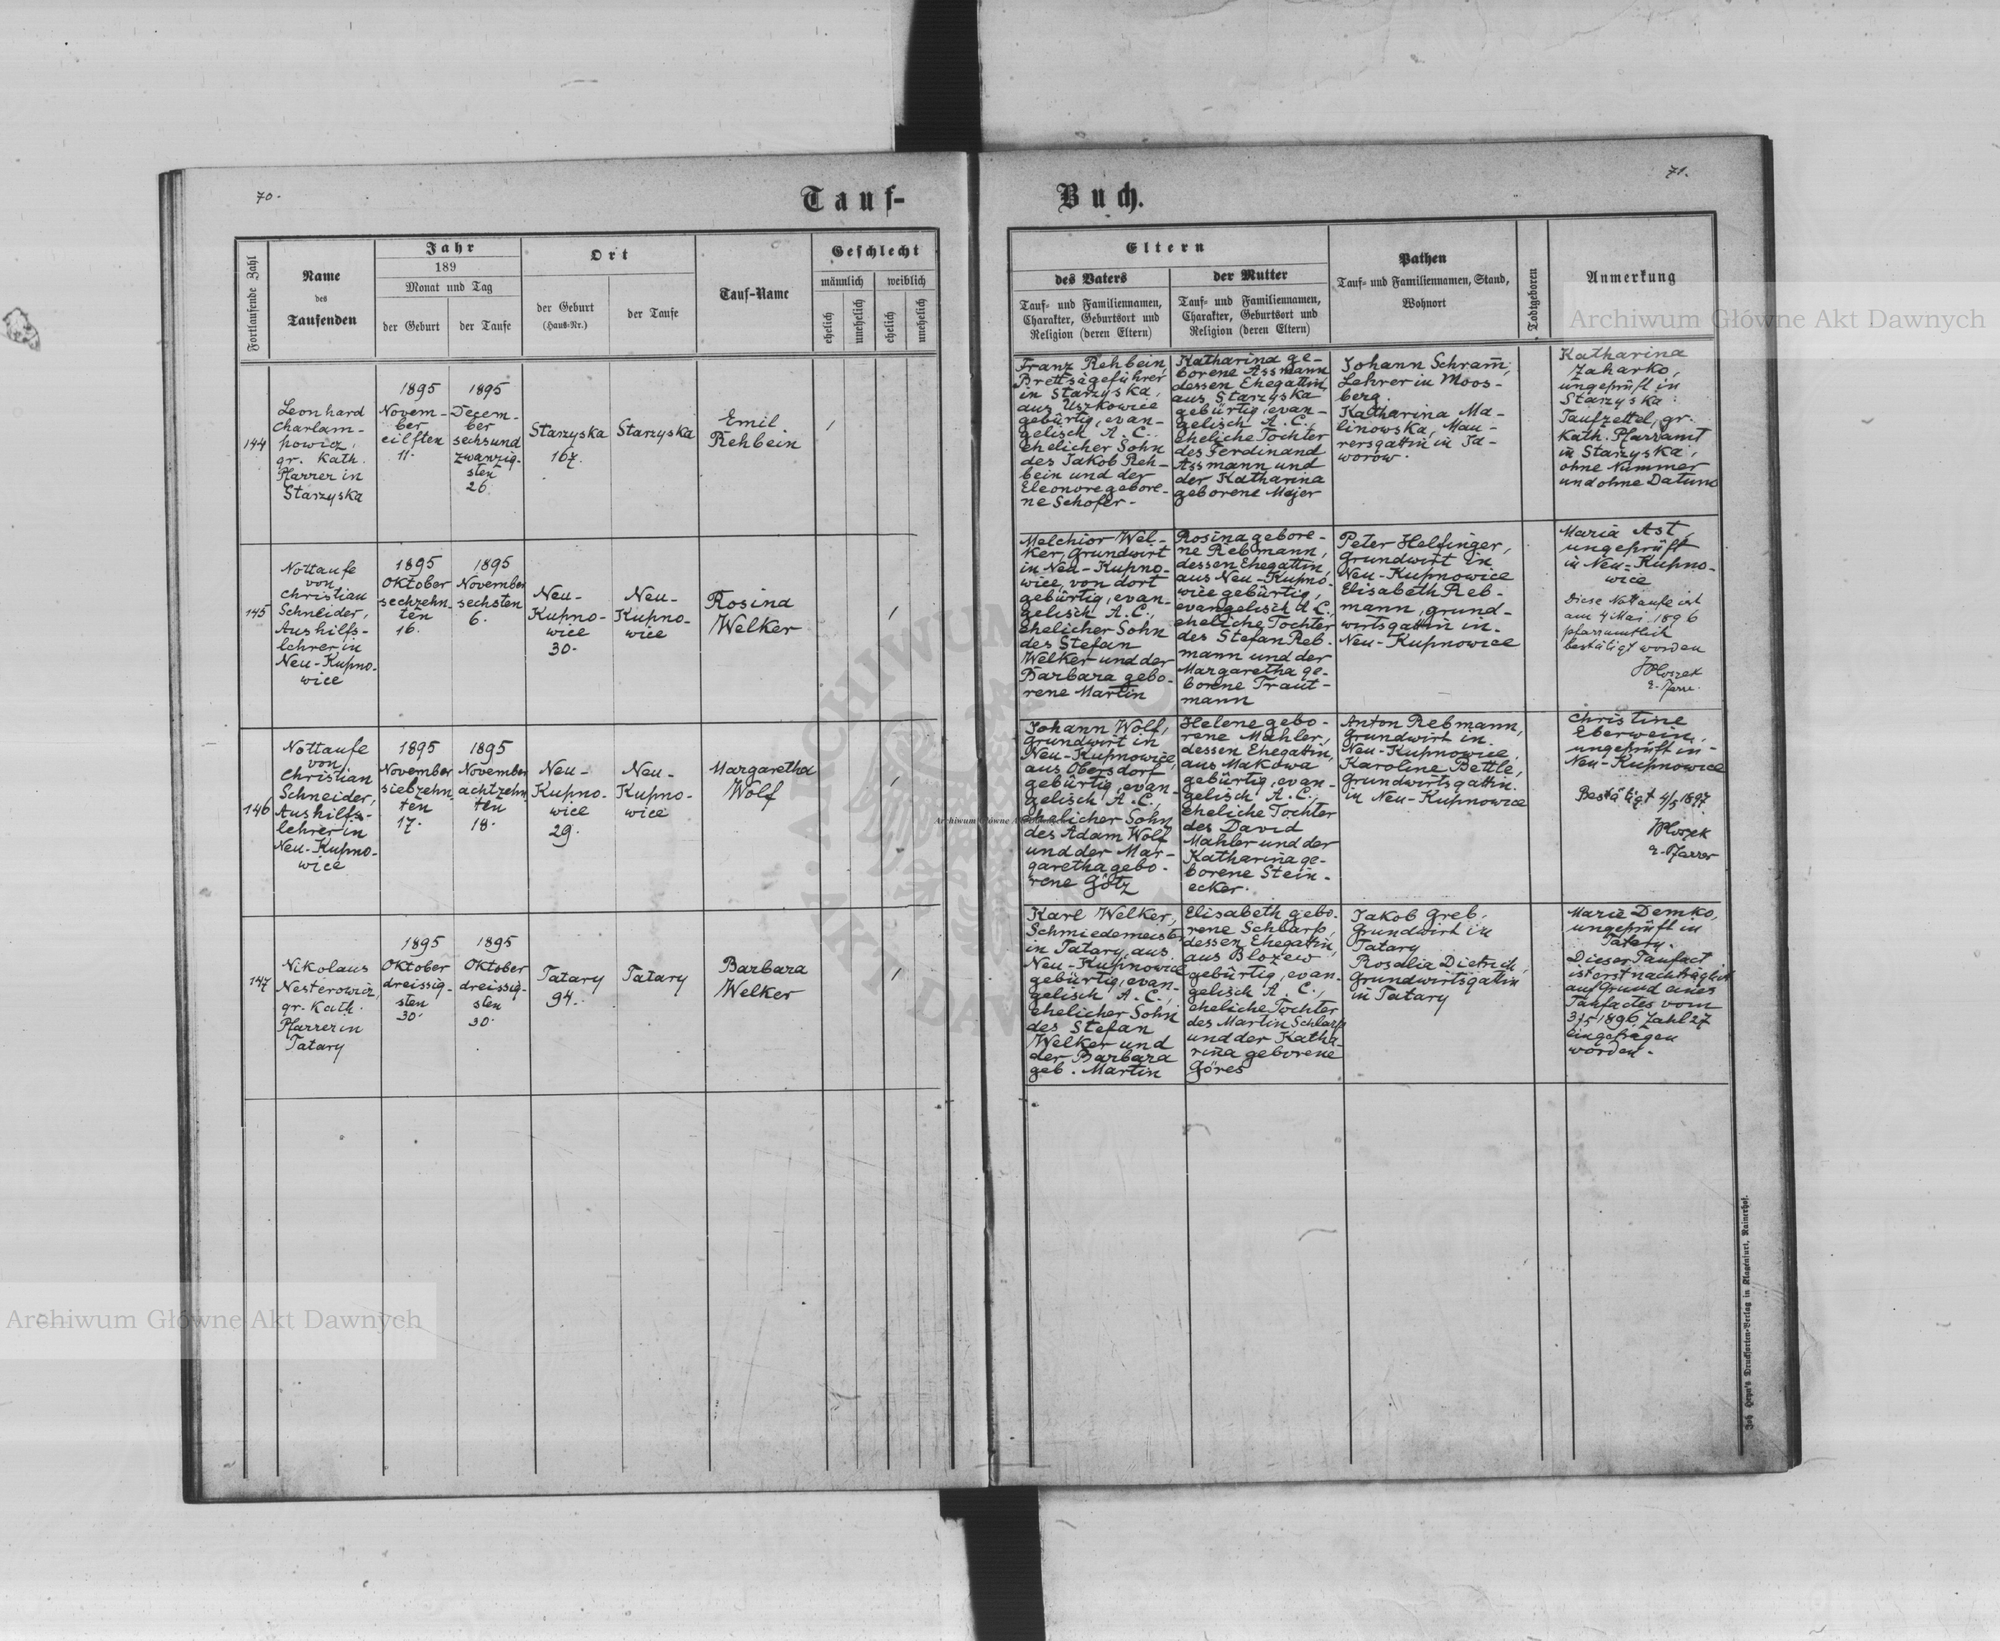 70.
Tauf-
Fortlaufende Zahl
Name
des
Taufenden
Jahr
189
Monat und Tag
der Geburt
der Taufe
Ort
der Geburt
(Haus-Nr.)
der Taufe
Tauf-Name
Geschlecht
männlich
weiblich
ehelich
unehelich
ehelich
unehelich
144
Leonhard
Charlam-
powicz,
gr. Kath.
Pfarrer in
Starzyska
1895
Novem-
ber
eilften
11.
1895
Dezem-
ber
sechsund
zwanzig-
sten
26.
Starzyska
167.
Starzyska
Emil
Rehbein
1
145
Nottaufe
von
Christian
Schneider,
Aushilfs-
lehrer in
Neu-Kupno-
wice
1895
Oktober
sechzehn-
ten
16.
1895
November
sechsten
6.
Neu-
Kupno-
wice
30.
Neu-
Kupno-
wice
Rosina
Welker
1
146
Nottaufe
von
Christian
Schneider,
Aushilfs-
lehrer in
Neu-Kupno-
wice
1895
November
siebzehn-
ten
17.
1895
November
achtzehn-
ten
18.
Neu-
Kupno-
wice
29.
Neu-
Kupno-
wice
Margaretha
Wolf
1
147
Nikolaus
Nesterowicz,
gr. Kath.
Pfarrer in
Tatary
1895
Oktober
dreissig-
sten
30.
1895
Oktober
dreissig-
sten
30.
Tatary
94.
Tatary
Barbara
Welker
1
71.
Buch.
Eltern
des Vaters
Tauf- und Familiennamen,
Charakter, Geburtsort und
Religion (deren Eltern)
der Mutter
Tauf- und Familiennamen,
Charakter, Geburtsort und
Religion (deren Eltern)
Pathen
Tauf- und Familiennamen, Stand,
Wohnort
Todtgeboren
Anmerkung
Franz Rehbein,
Brettsägeführer
in Starzyska,
aus Uszkowice
gebürtig, evan-
gelisch A. C.,
ehelicher Sohn
des Jakob Reh-
bein und der
Eleonore gebore-
ne Schofer.
Katharina ge-
borene Assmann
dessen Ehegattin,
aus Starzyska
gebürtig, evan-
gelisch A. C.,
eheliche Tochter
des Ferdinand
Assmann und
der Katharina
geborene Majer
Johann Schram̄,
Lehrer in Moos-
berg.
Katharina Ma-
linowska, Mau-
rersgattin in Ja-
worów.
Katharina
Zaharko,
ungeprüft in
Starzyska.
Taufzettel, gr.
Kath. Pfarramt
in Starzyska,
ohne Nummer
und ohne Datum
Melchior Wel-
ker, Grundwirt
in Neu-Kupno-
wice, von dort
gebürtig, evan-
gelisch A. C.,
ehelicher Sohn
des Stefan
Welker und der
Barbara gebo-
rene Martin
Rosina gebore-
ne Rebmann,
dessen Ehegattin,
aus Neu-Kupno-
wice gebürtig,
evangelisch A. C.,
eheliche Tochter
des Stefan Reb-
mann und der
Margaretha ge-
borene Traut-
mann
Peter Helfinger,
Grundwirt in
Neu-Kupnowice
Elisabeth Reb-
mann, Grund-
wirtsgattin in
Neu-Kupnowice
Maria Ast,
ungeprüft
in Neu-Kupno-
wice
Diese Nottaufe ist
am 4 Mai 1896
pfarramtlich
bestätigt worden
Johann Wolf,
Grundwirt in
Neu-Kupnowice,
aus Obersdorf
gebürtig, evan-
gelisch A. C.,
ehelicher Sohn
des Adam Wolf
und der Mar-
garetha gebo-
rene Götz
Helene gebo-
rene Mahler,
dessen Ehegattin,
aus Makowa
gebürtig, evan-
gelisch A. C.,
eheliche Tochter
des David
Mahler und der
Katharina ge-
borene Stein-
ecker.
Anton Rebmann,
Grundwirt in
Neu-Kupnowice,
Karoline Bettle,
Grundwirtsgattin
in Neu-Kupnowice
Christine
Eberwein,
ungeprüft in
Neu-Kupnowice
Bestätigt 4/5 1897
E. Pfarrer
Karl Welker,
Schmiedemeister
in Tatary, aus
Neu-Kupnowice
gebürtig, evan-
gelisch A. C.,
ehelicher Sohn
des Stefan
Welker und
der Barbara
geb. Martin
Elisabeth gebo-
rene Schlarp,
dessen Ehegattin,
aus Blozew
gebürtig, evan-
gelisch A. C.,
eheliche Tochter
des Martin Schlarp
und der Katha-
rina geborene
Göres
Jakob Greb,
Grundwirt in
Tatary
Rosalia Dietrich,
Grundwirtsgattin
in Tatary
Maria Demko,
ungeprüft in
Tatary.
Dieser Taufact
ist erst nachträglich
auf Grund eines
Taufactes vom
3/5 1896 Zahl 27
eingetragen
worden.
Joh. Heyn's Drucksorten-Verlag in Klagenfurt, Rainerhof.
Archiwum Główne Akt Dawnych
Archiwum Główne Akt Dawnych